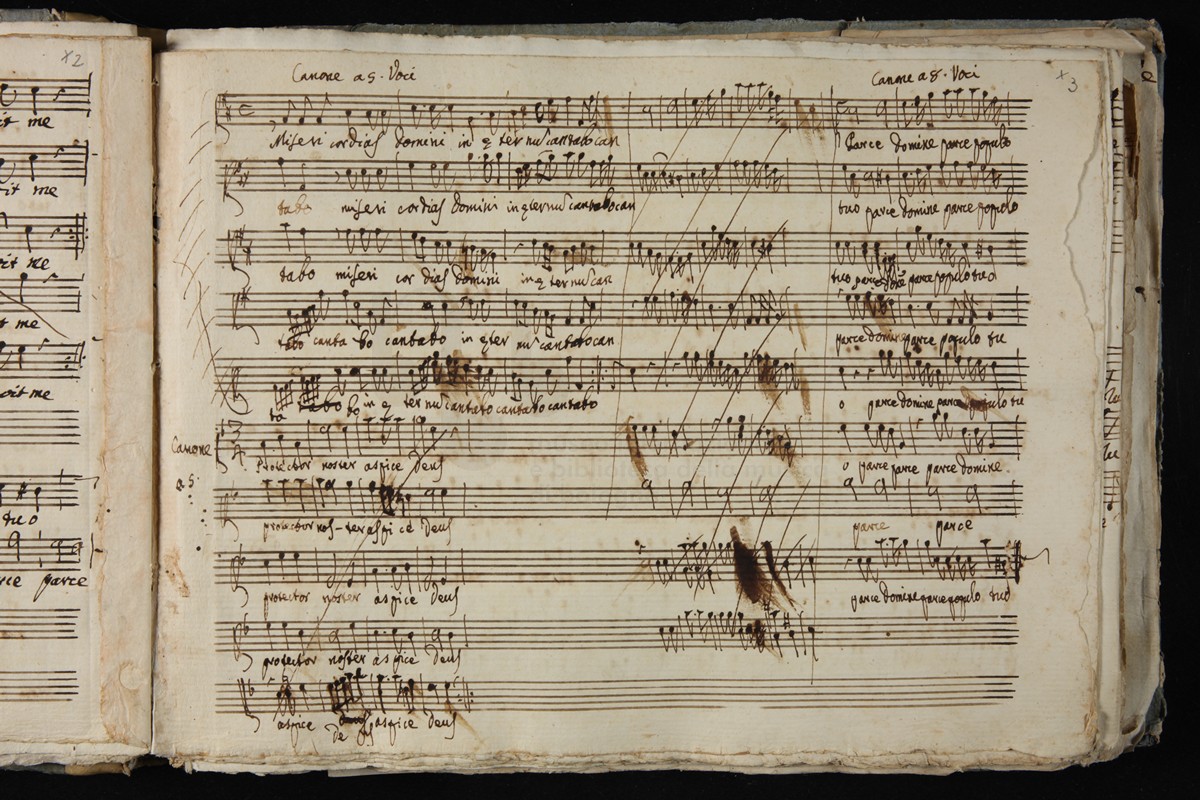 x2
it me
it me
it me
t me
oit me
tuo
rce parce
Canone a 5. Voci
Canone a 8. Voci
x3
Miseri cordias Domini in ę ter nu cantabo can
Parce Domine parce populo
tabo miseri cordias Domini in ęternu cantabo can
tuo parce Domine parce populo
tabo miseri cor dias Domini in ę ter nu can
tuo parce parce populo tuo
tabo canta bo cantabo in ęter nu cantabo can
parce Domine parce populo tu
ta bo in ę ter nu cantabo cantabo cantabo
o parce Domine parce populo tu
Canone
a 5.
Protector noster aspice Deus
o parce parce parce Domine
protector nos-ter aspi ce Deus
parce parce
protector noster aspice Deus
parce Domine parce populo tuo
protector noster aspice Deus
aspice Deus aspice Deus